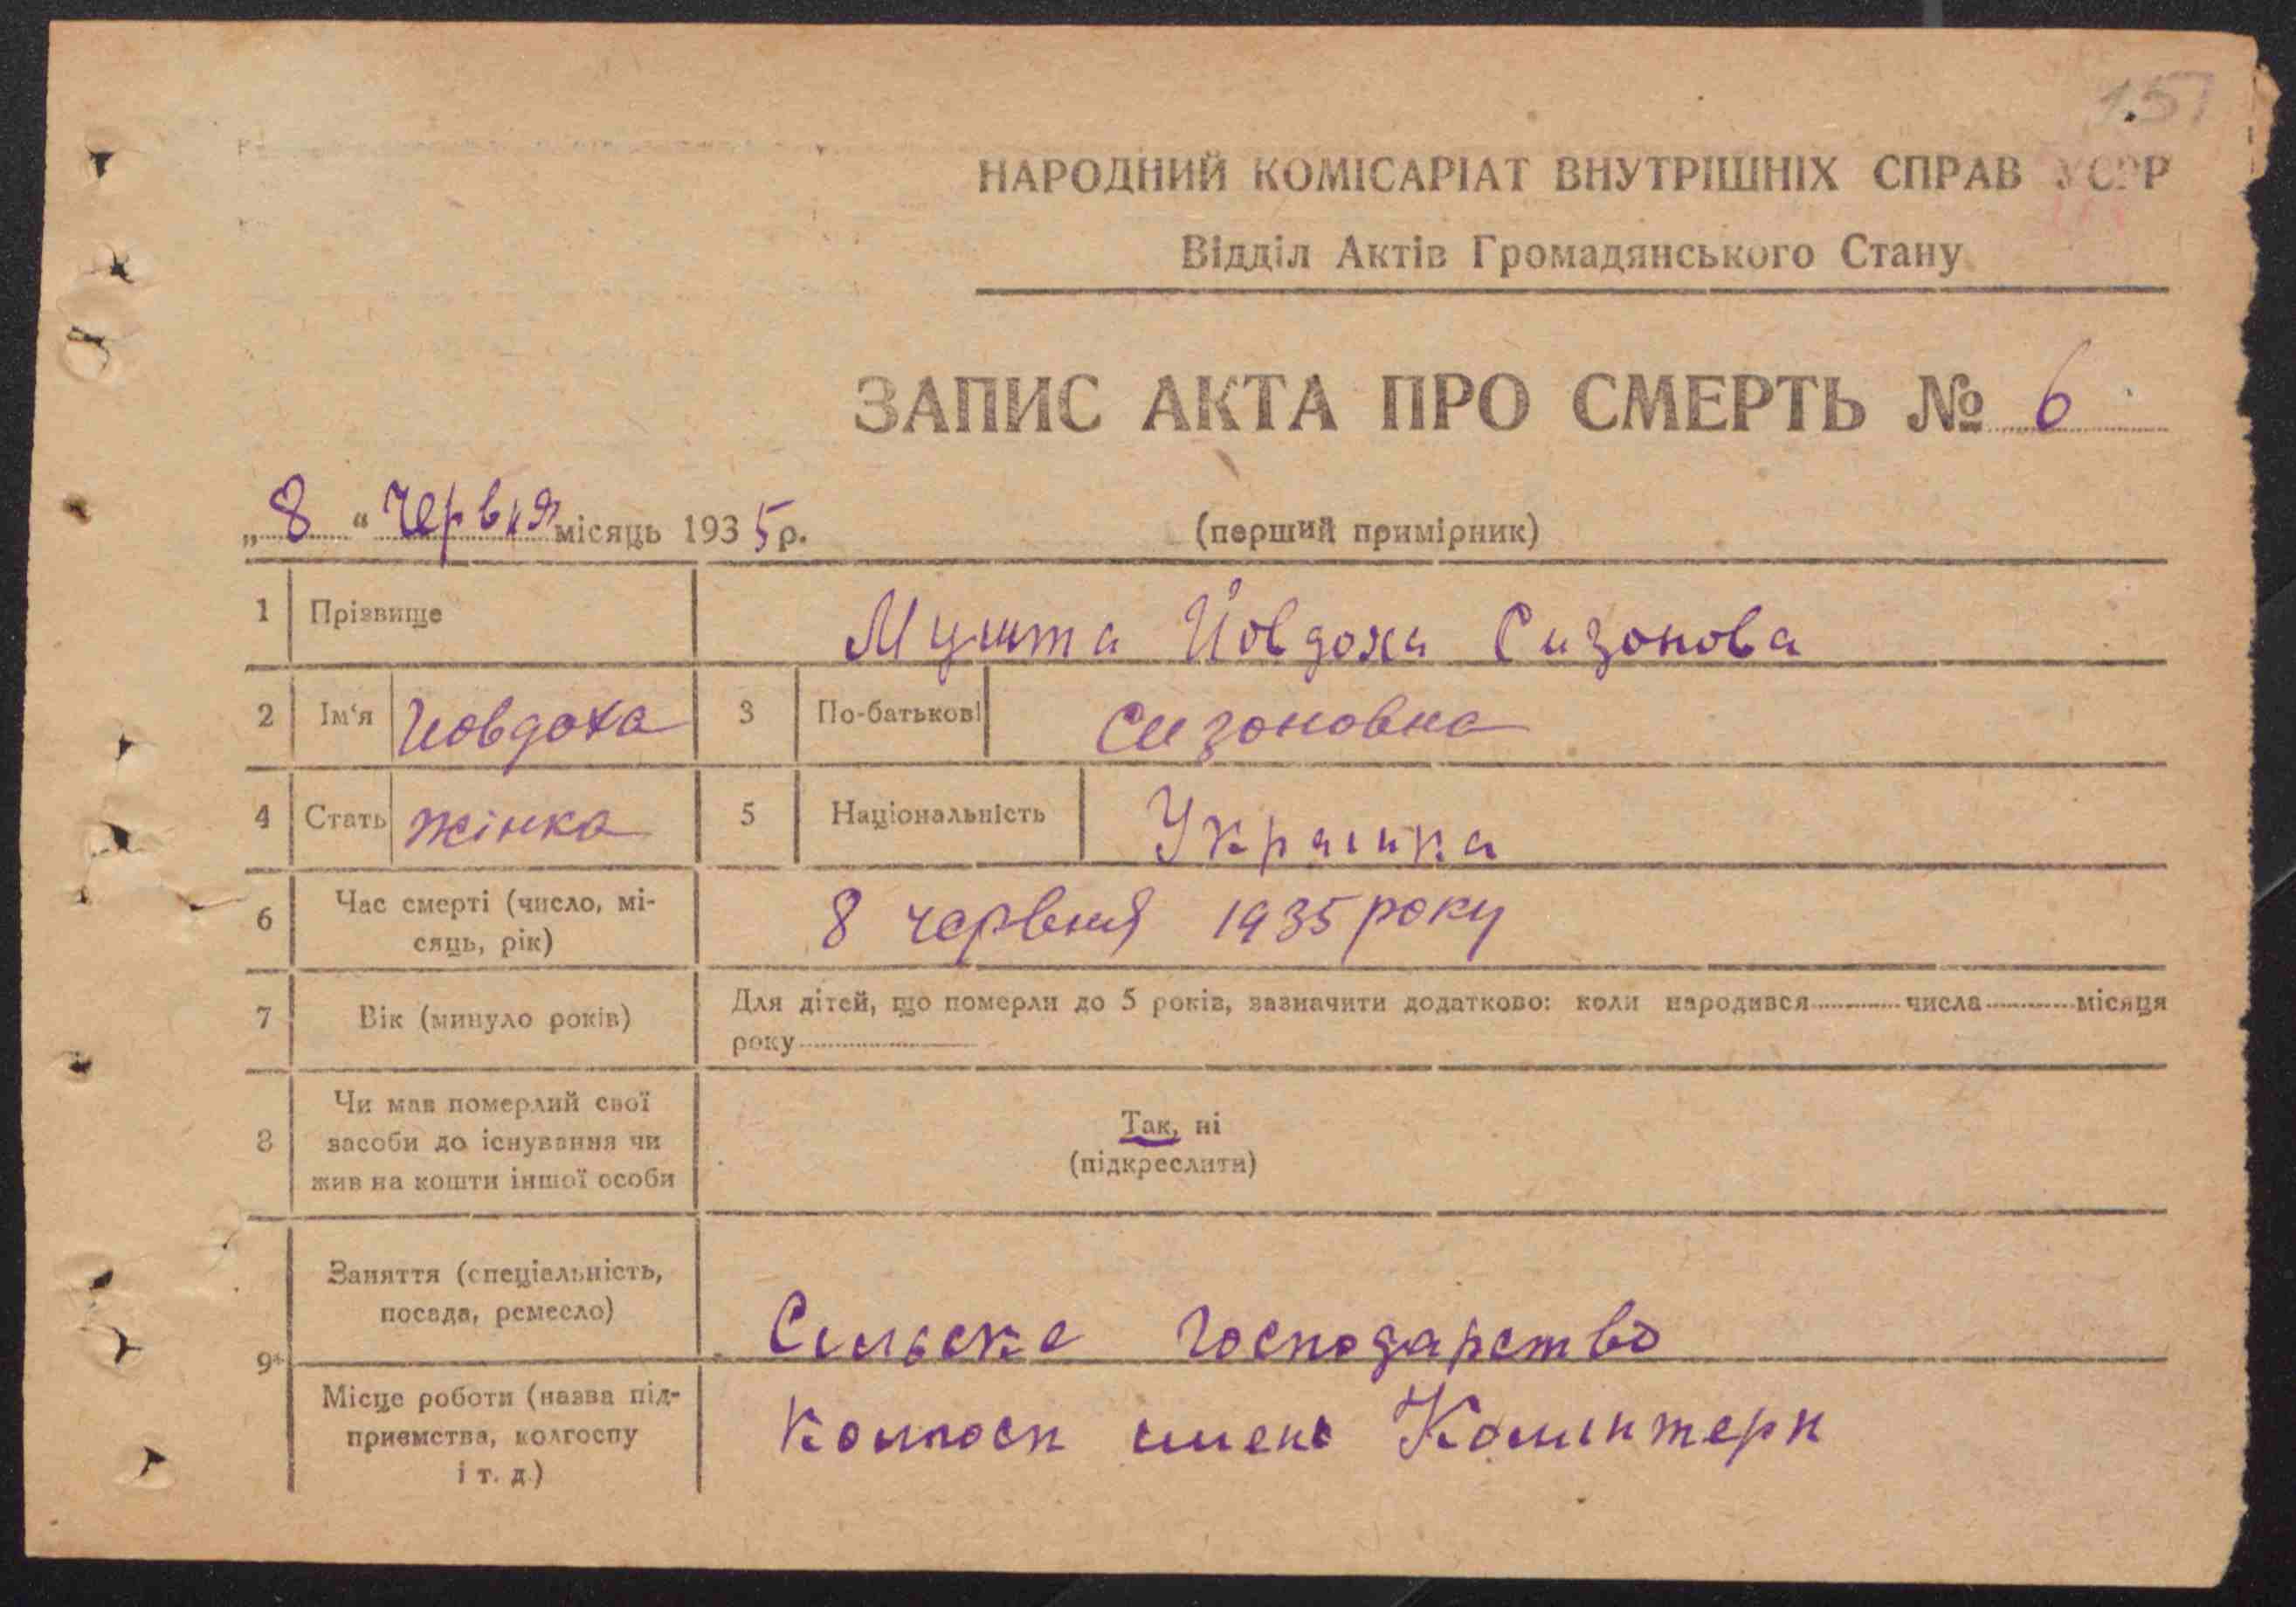 157
НАРОДНИЙ КОМІСАРІАТ ВНУТРІШНІХ СПРАВ УСРР
Відділ Актів Громадянського Стану
ЗАПИС АКТА ПРО СМЕРТЬ № 6
„8“ червня місяць 1935 р.
(перший примірник)
1 Прізвище Мушта Йовдоха Сизонова
2 Ім‘я Йовдоха 3 По-батькові Сизоновна
4 Стать жінка 5 Національність Украінка
6 Час смерті (число, мі-
сяць, рік) 8 червня 1935 року
7 Вік (минуло років) Для дітей, що померли до 5 років, зазначити додатково: коли народився числа місяця
року
8 Чи мав померлий свої
засоби до існування чи
жив на кошти іншої особи
Так, ні
(підкреслити)
9* Заняття (спеціальність,
посада, ремесло) Сильске господарство
Місце роботи (назва під-
приємства, колгоспу
і т. д.) имене Комінтерн